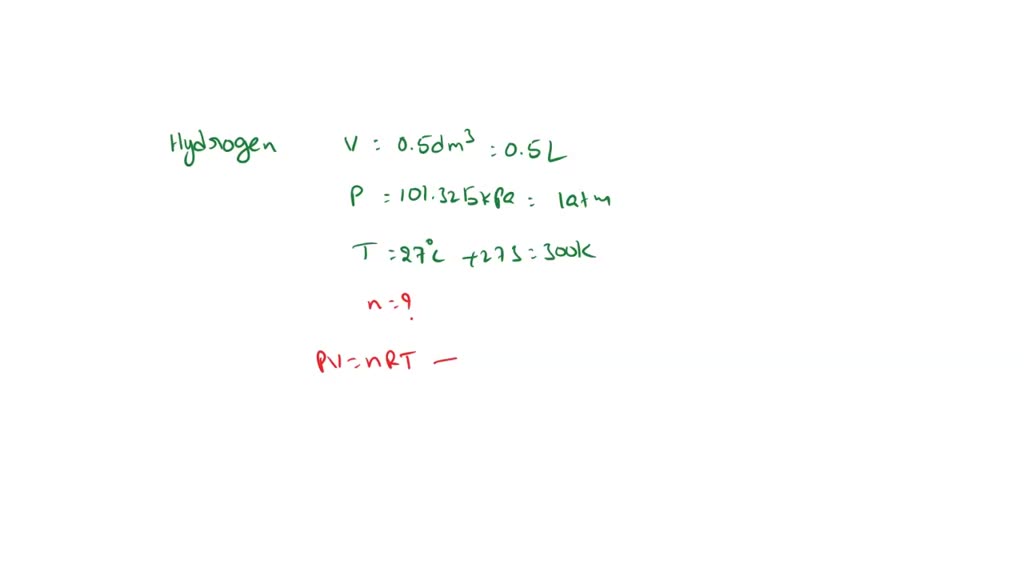 Hydrogen V = 0.5dm³ = 0.5L
P = 101.325kPa = 1atm
T = 27°C + 273 = 300k
n = ?
PV = nRT —